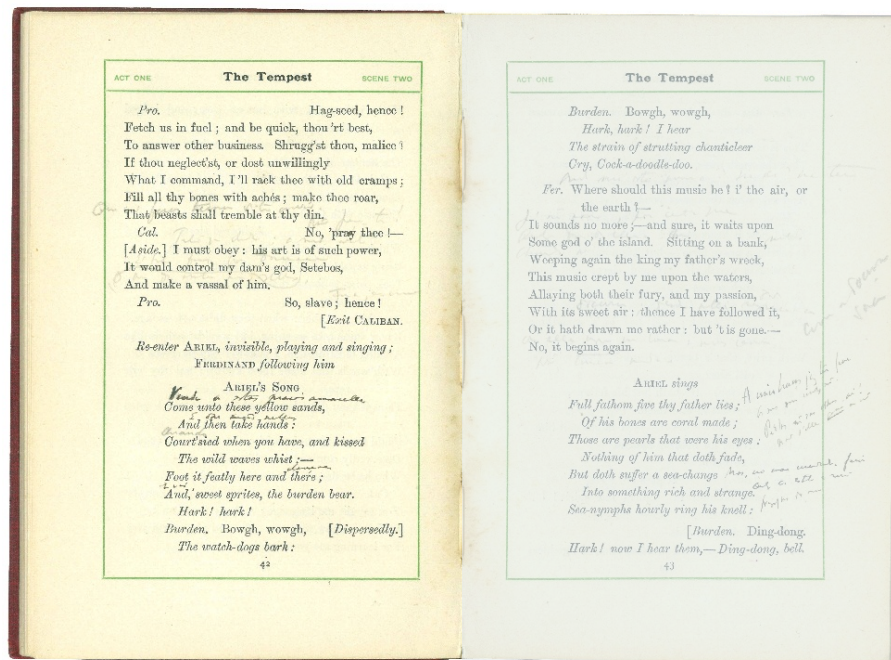 ACT ONE The Tempest SCENE TWO
Pro. Hag-seed, hence!
Fetch us in fuel; and be quick, thou 'rt best,
To answer other business. Shrugg'st thou, malice?
If thou neglect'st, or dost unwillingly
What I command, I'll rack thee with old cramps;
Fill all thy bones with achës; make thee roar,
That beasts shall tremble at thy din.
Cal. No, 'pray thee!—
[Aside.] I must obey: his art is of such power,
It would control my dam's god, Setebos,
And make a vassal of him.
Pro. So, slave; hence!
[Exit CALIBAN.
Re-enter ARIEL, invisible, playing and singing;
FERDINAND following him
ARIEL'S SONG
Come unto these yellow sands,
And then take hands:
Court'sied when you have, and kissed
The wild waves whist;—
Foot it featly here and there;
And, sweet sprites, the burden bear.
Hark! hark!
Burden. Bowgh, wowgh, [Dispersedly.]
The watch-dogs bark:
42
ACT ONE The Tempest SCENE TWO
Burden. Bowgh, wowgh,
Hark, hark! I hear
The strain of strutting chanticleer
Cry, Cock-a-doodle-doo.
Fer. Where should this music be? i' the air, or
the earth?—
It sounds no more;—and sure, it waits upon
Some god o' the island. Sitting on a bank,
Weeping again the king my father's wreck,
This music crept by me upon the waters,
Allaying both their fury, and my passion,
With its sweet air: thence I have followed it,
Or it hath drawn me rather: but 't is gone.—
No, it begins again.
ARIEL sings
Full fathom five thy father lies;
Of his bones are coral made;
Those are pearls that were his eyes:
Nothing of him that doth fade,
But doth suffer a sea-change
Into something rich and strange.
Sea-nymphs hourly ring his knell:
[Burden. Ding-dong.
Hark! now I hear them,—Ding-dong, bell.
43